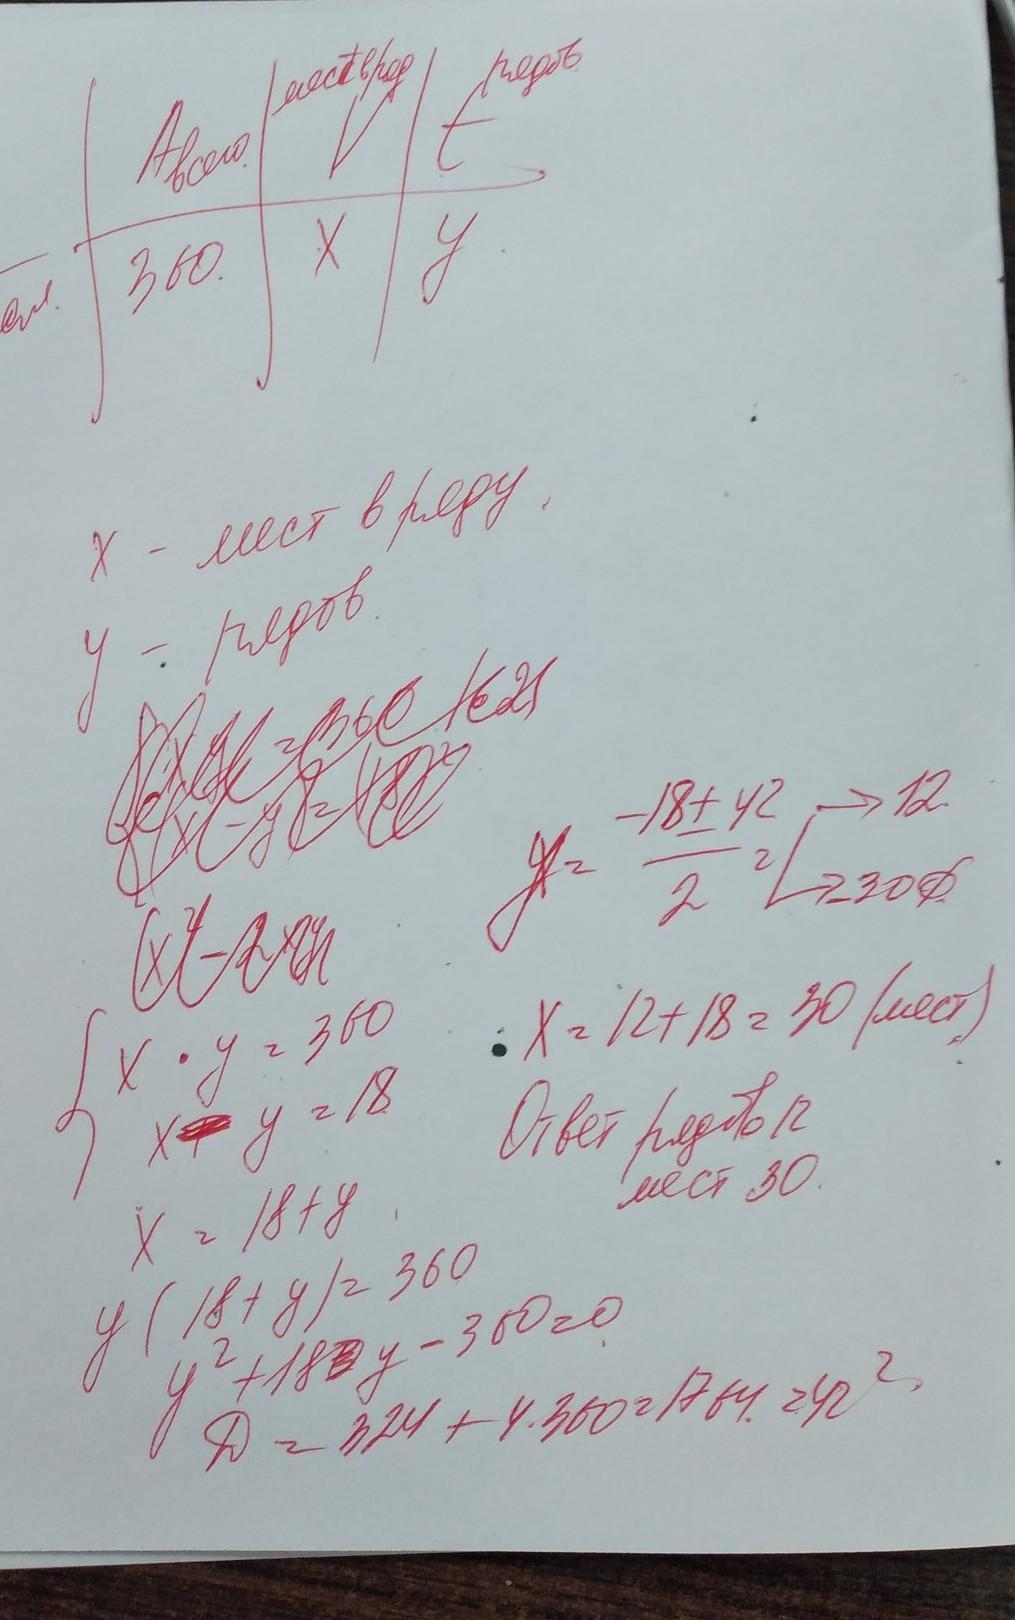 мест в ряд рядов
A всего V t
360. X y
X - мест в ряду.
y - рядов.
x · y = 360
x - y = 18
X = 18 + y
y (18 + y) = 360
y² + 18 y - 360 = 0
D = 324 + 4·360 = 1764 = 42²
y = -18 ± 42 / 2 = → 12
→ -30 ∅
X = 12 + 18 = 30 (мест)
Ответ рядов 12
мест 30.